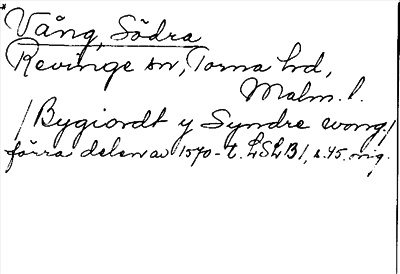 Vång, Södra
Revinge sn, Torna hd,
Malm. l.
/Bygiordt y Syndre wong/
förra delen av 1570-t. LSLB1, s. 45. orig.